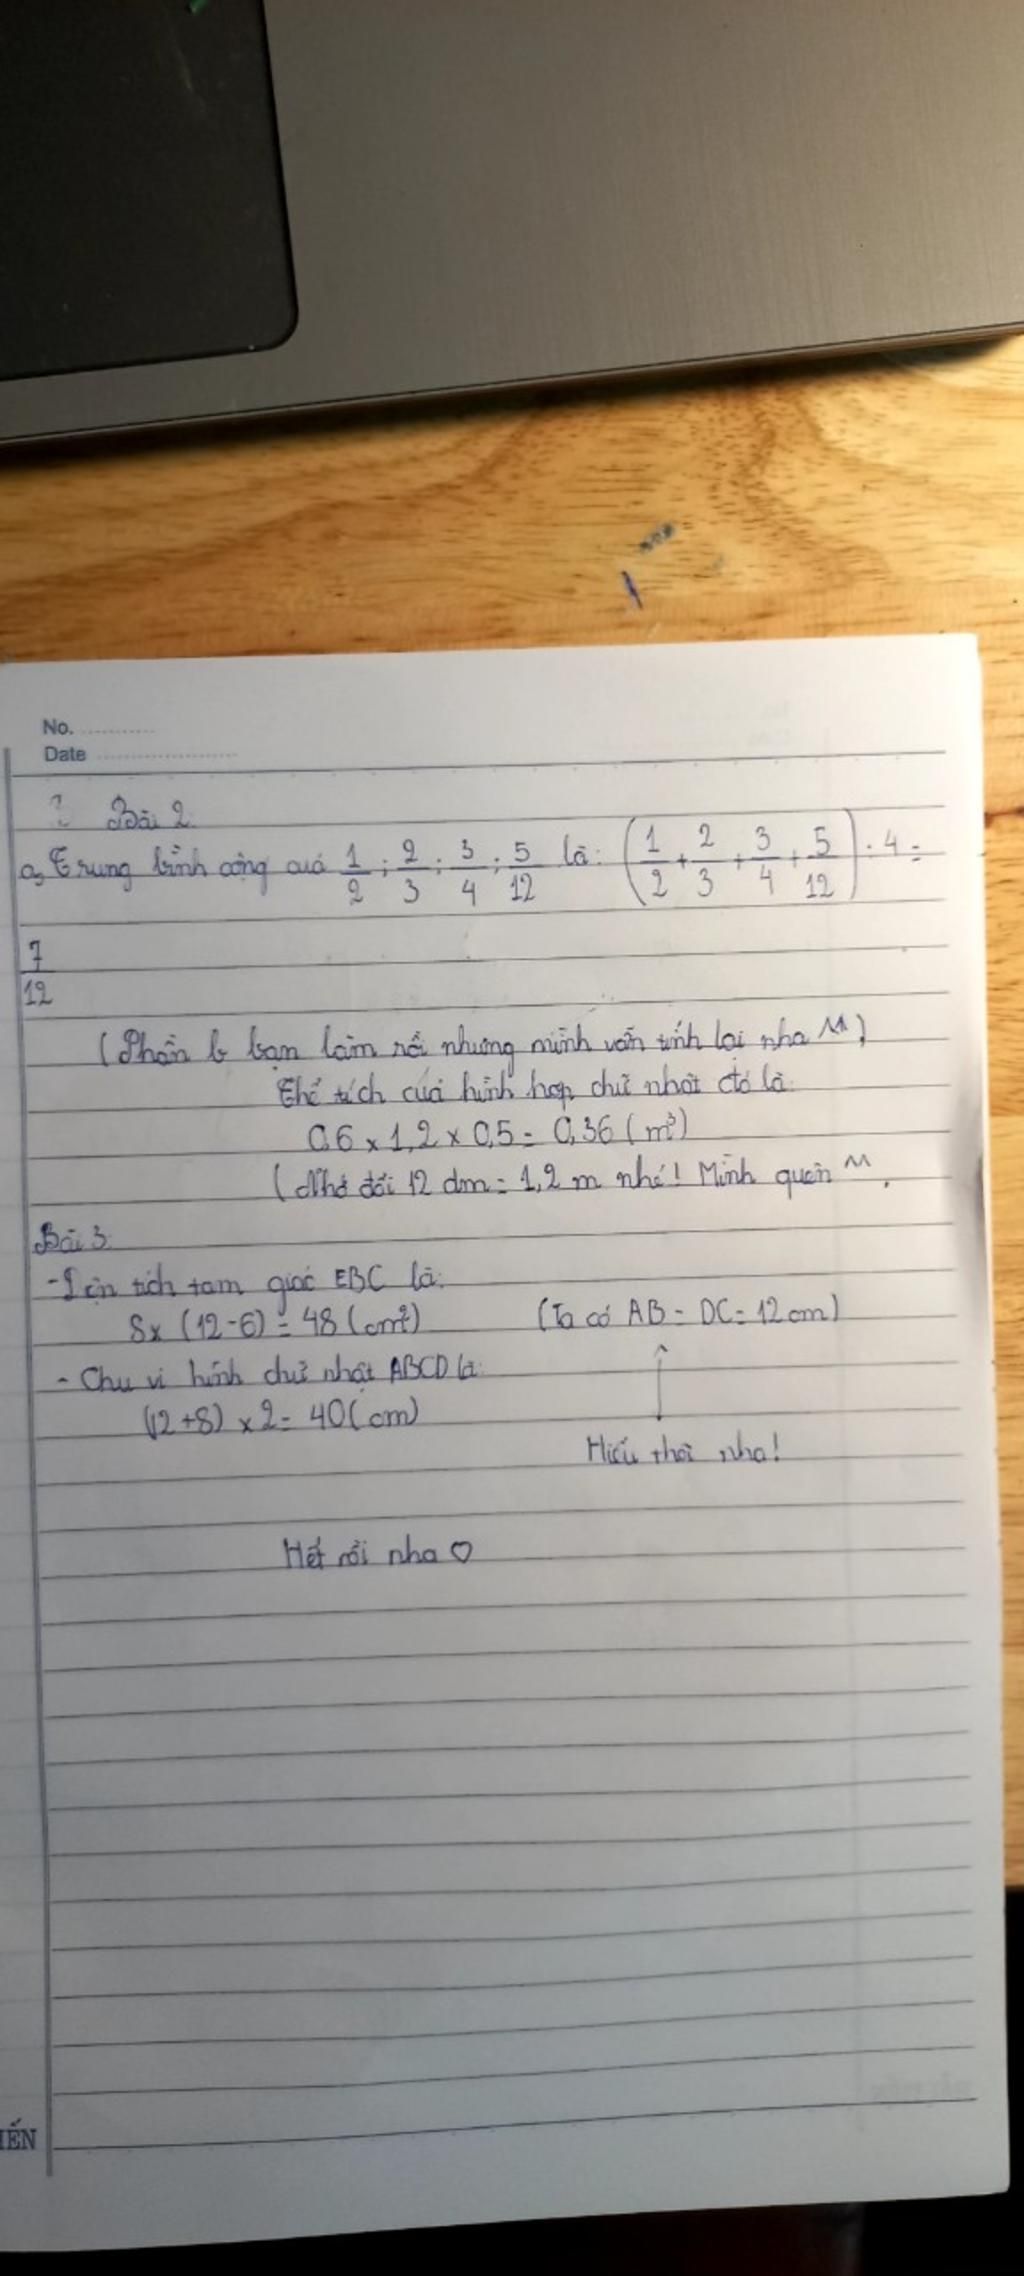 No. ............
Date ........................
Bài 2
a, Trung bình cộng củả 1/2 ; 2/3 ; 3/4 ; 5/12 là: (1/2 + 2/3 + 3/4 + 5/12) : 4 =
7/12
(Phần b bạn làm rồi nhưng mình vẫn tính lại nha ^^)
Thể tích của hình hộp chữ nhật đó là:
0,6 x 1,2 x 0,5 = 0,36 (m³)
(Nhớ đổi 12 dm = 1,2 m nhé! Mình quên ^^.
Bài 3:
- Diện tích tam giác EBC là:
8 x (12-6) = 48 (cm²) (Ta có AB = DC = 12 cm)
- Chu vi hình chữ nhật ABCD là:
(12+8) x 2 = 40 (cm)
Hiểu thôi nha!
Hết rồi nha ♡
IẾN